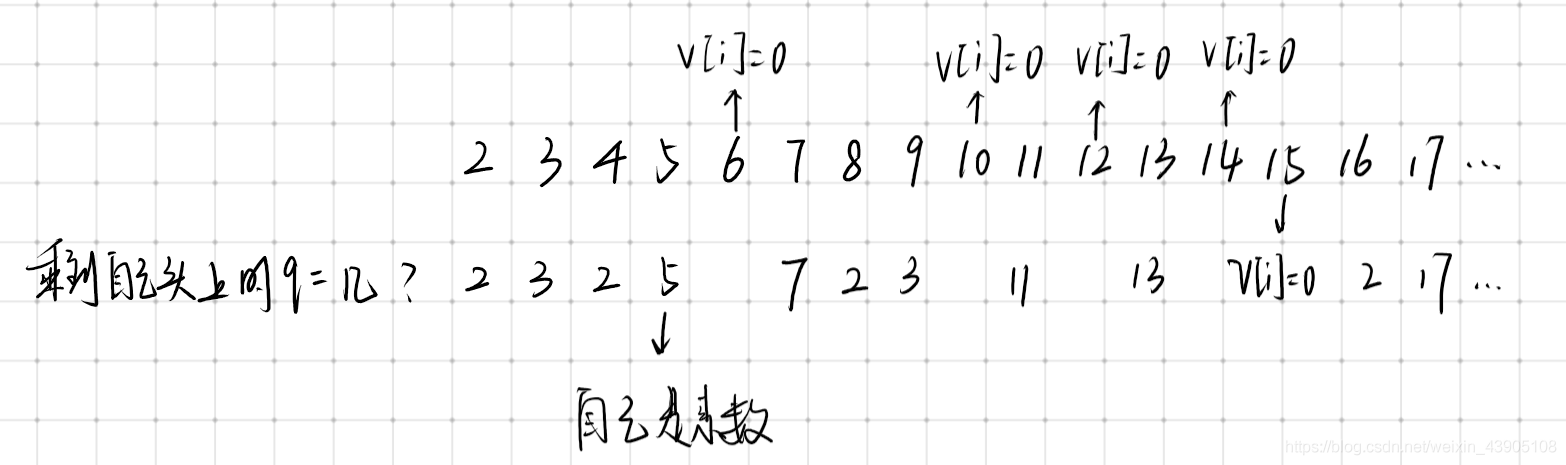 V[i]=0 V[i]=0 V[i]=0 V[i]=0
2 3 4 5 6 7 8 9 10 11 12 13 14 15 16 17 ...
乘到自己头上的q=几? 2 3 2 5 7 2 3 11 13 V[i]=0 2 17 ...
自己是素数
https://blog.csdn.net/weixin_43905108